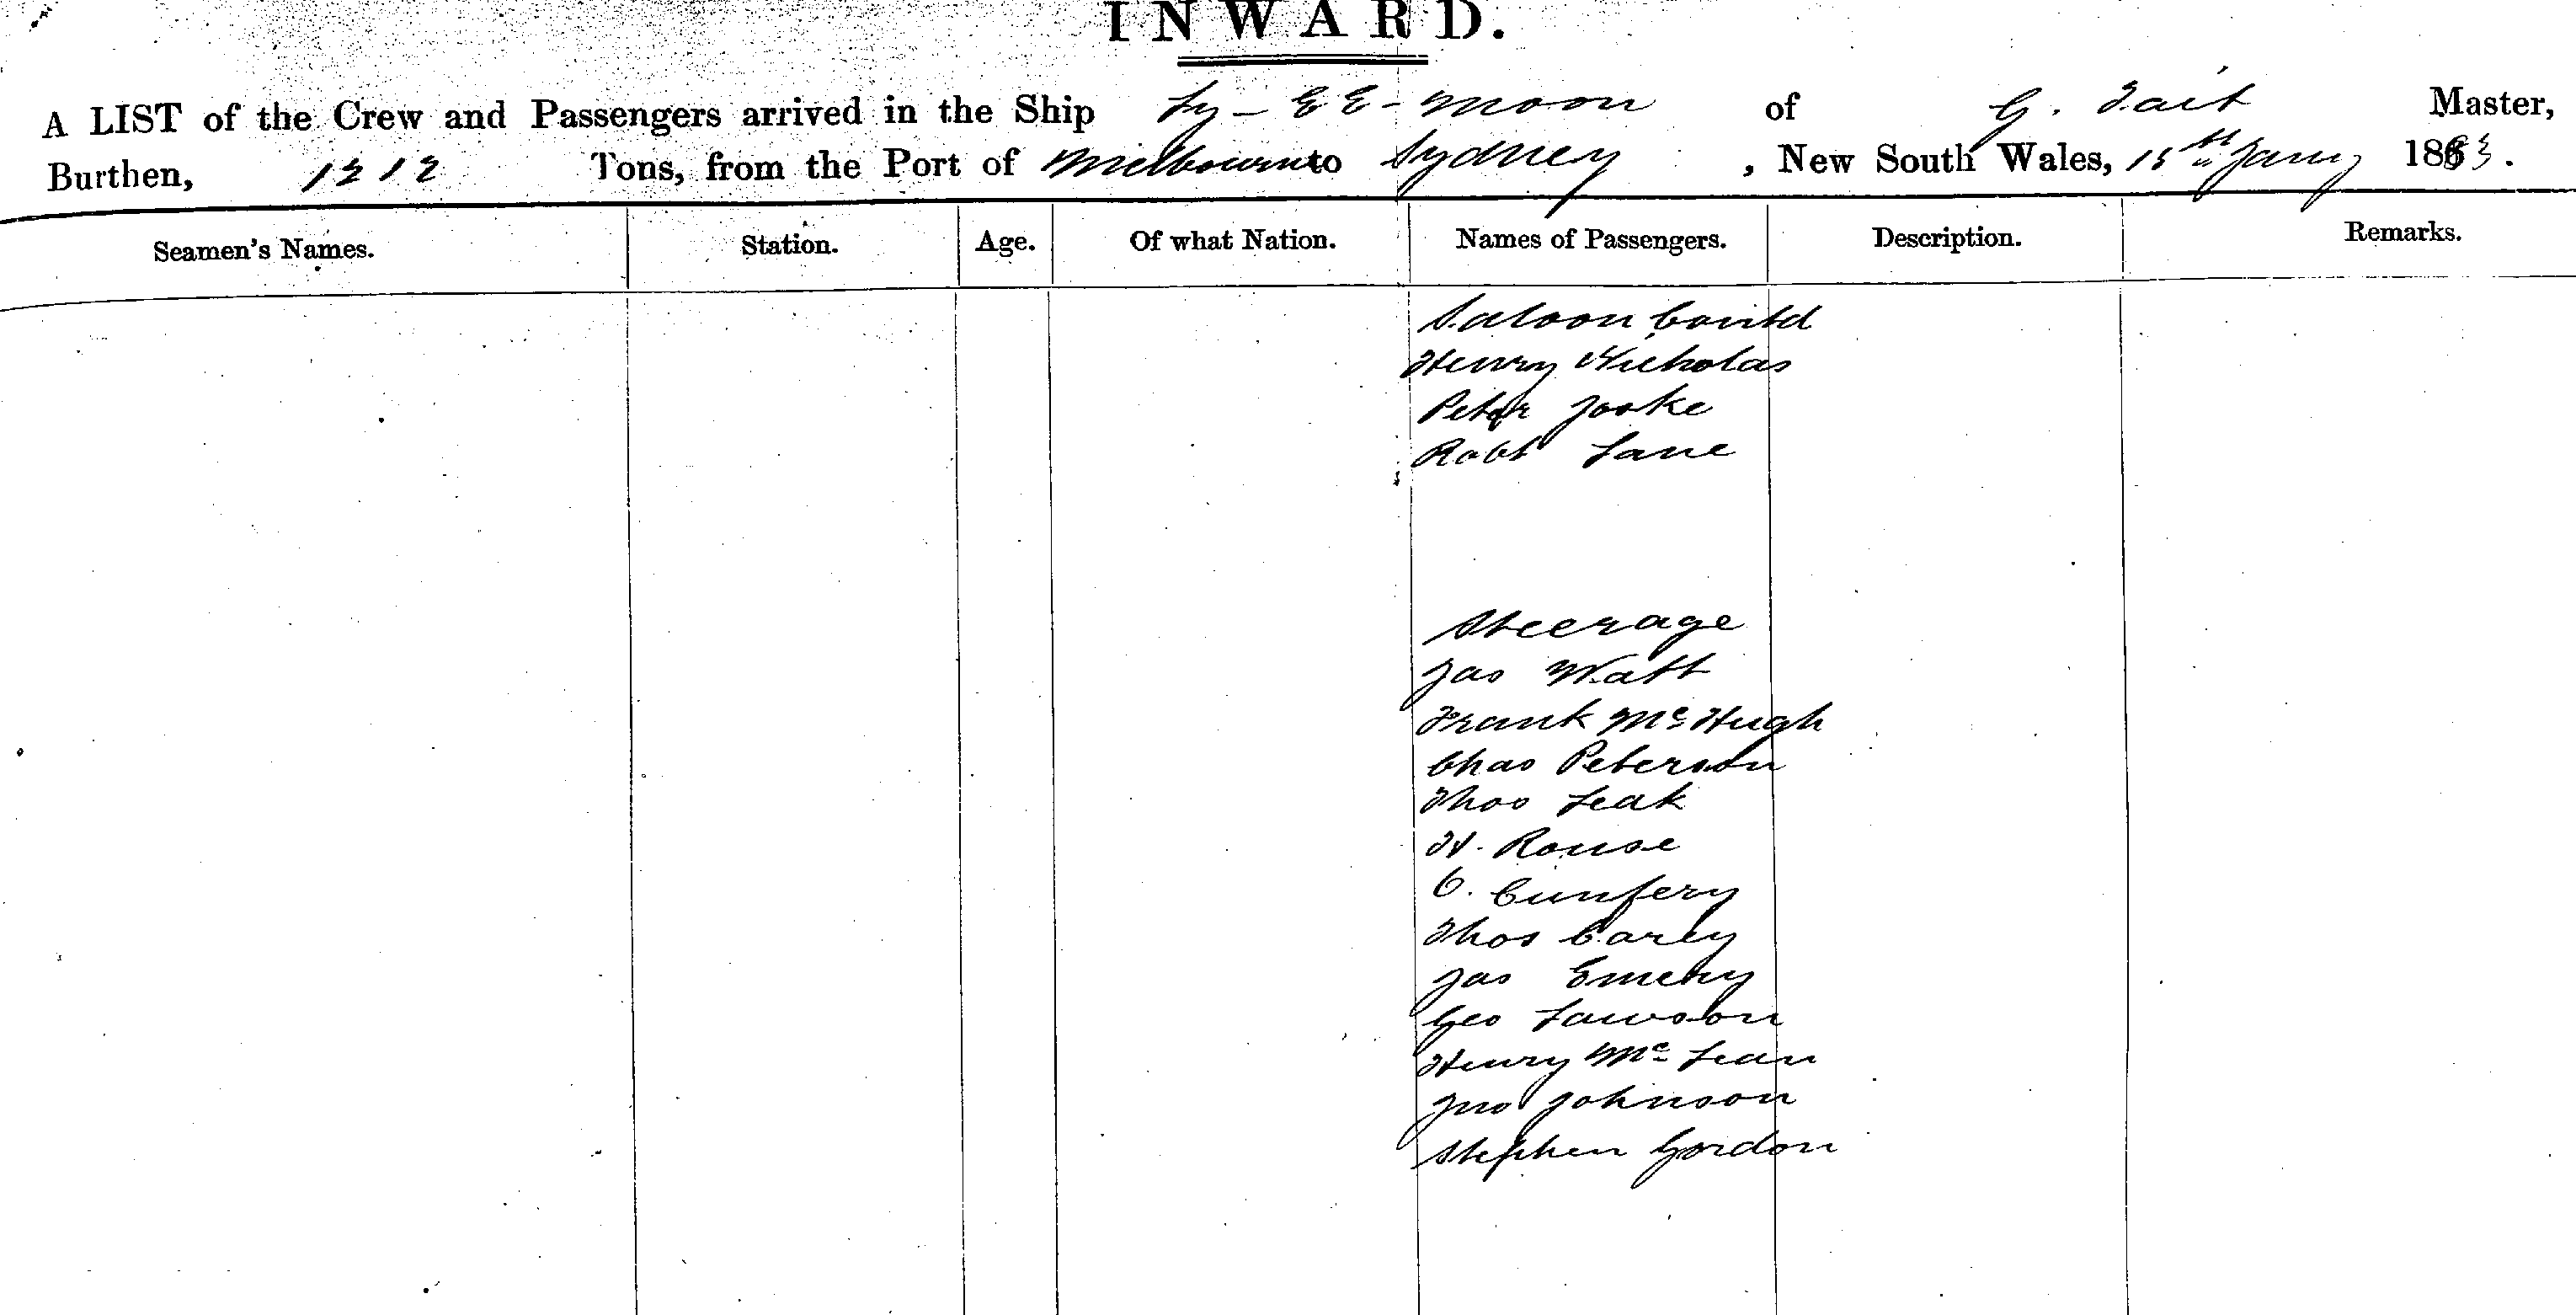 INWARD.
A LIST of the Crew and Passengers arrived in the Ship Ly-EE-Moon of G. Tait Master,
Burthen, 1212 Tons, from the Port of Melbourne to Sydney, New South Wales, 15th Jany 1883.
Seamen's Names. Station. Age. Of what Nation. Names of Passengers. Description. Remarks.
Saloon Contd
Henry Nicholas
Peter Joske
Robt Lane
Steerage
Jas Watt
Frank McHugh
Chas Peterson
Thos Leak
H. Rouse
C. Cunfery
Thos Carey
Jas Emery
Geo Lawson
Henry Mc Lean
Jno Johnson
Stephen Gordon